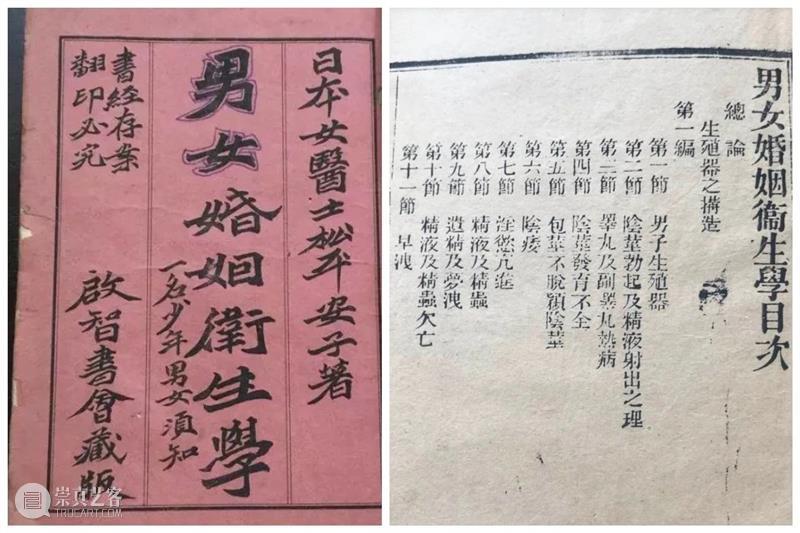 日本女醫士松平安子著
男女婚姻衛生學
一名少年男女須知
啟智書會藏版
書經存案
翻印必究
男女婚姻衞生學目次
總論
生殖器之搆造
第一編
第一節　男子生殖器
第二節　陰莖勃起及精液射出之理
第三節　睾丸及副睾丸熱病
第四節　陰莖發育不全
第五節　包莖不脫穎陰莖
第六節　陰痿
第七節　淫慾亢進
第八節　精液及精蟲
第九節　遺精及夢洩
第十節　精液及精蟲欠亡
第十一節　早洩
崇真艺客
TRUEART.COM